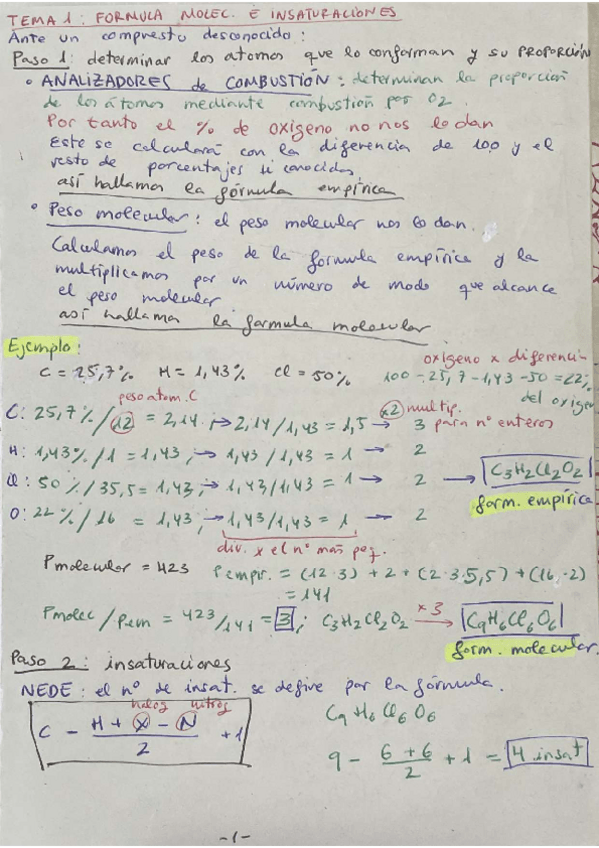 TEMA 1: FORMULA MOLEC. E INSATURACIONES
Ante un compuesto desconocido:
Paso 1: determinar los atomos que lo conforman y su PROPORCIÓN
• ANALIZADORES de COMBUSTIÓN: determinan la proporción
de los átomos mediante combustión por O2.
Por tanto el % de oxigeno no nos lo dan
Este se calculará con la diferencia de 100 y el
resto de porcentajes si conocidos.
así hallamos la fórmula empírica
• Peso molecular: el peso molecular nos lo dan.
Calculamos el peso de la formula empírica y la
multiplicamos por un número de modo que alcance
el peso molecular
así hallamos la formula molecular
Ejemplo:
oxígeno x diferenci-
C = 25,7% H = 1,43% Cl = 50% 100 - 25,7 - 1,43 - 50 = 22%
del oxigen
peso atom. C
C: 25,7%/12 = 2,14 → 2,14/1,43 = 1,5 → 3
x2 multip.
para nº enteros
H: 1,43%/1 = 1,43 → 1,43/1,43 = 1 → 2
Cl: 50%/35,5 = 1,43 → 1,43/1,43 = 1 → 2 → C3H2Cl2O2
form. empírica
O: 22%/16 = 1,43 → 1,43/1,43 = 1 → 2
div. x el nº más peq.
Pmolecular = 423 Pempir. = (12·3) + 2 + (2·35,5) + (16·2)
= 141
Pmolec/Pem = 423/141 = 3; C3H2Cl2O2 x3 → C9H6Cl6O6
form. molecular.
Paso 2: insaturaciones
NEDE: el nº de insat. se define por la fórmula.
halog nitrog
C - H + X - N / 2 + 1
C9 H6 Cl6 O6
9 - 6 + 6 / 2 + 1 = 4 insat
-1-